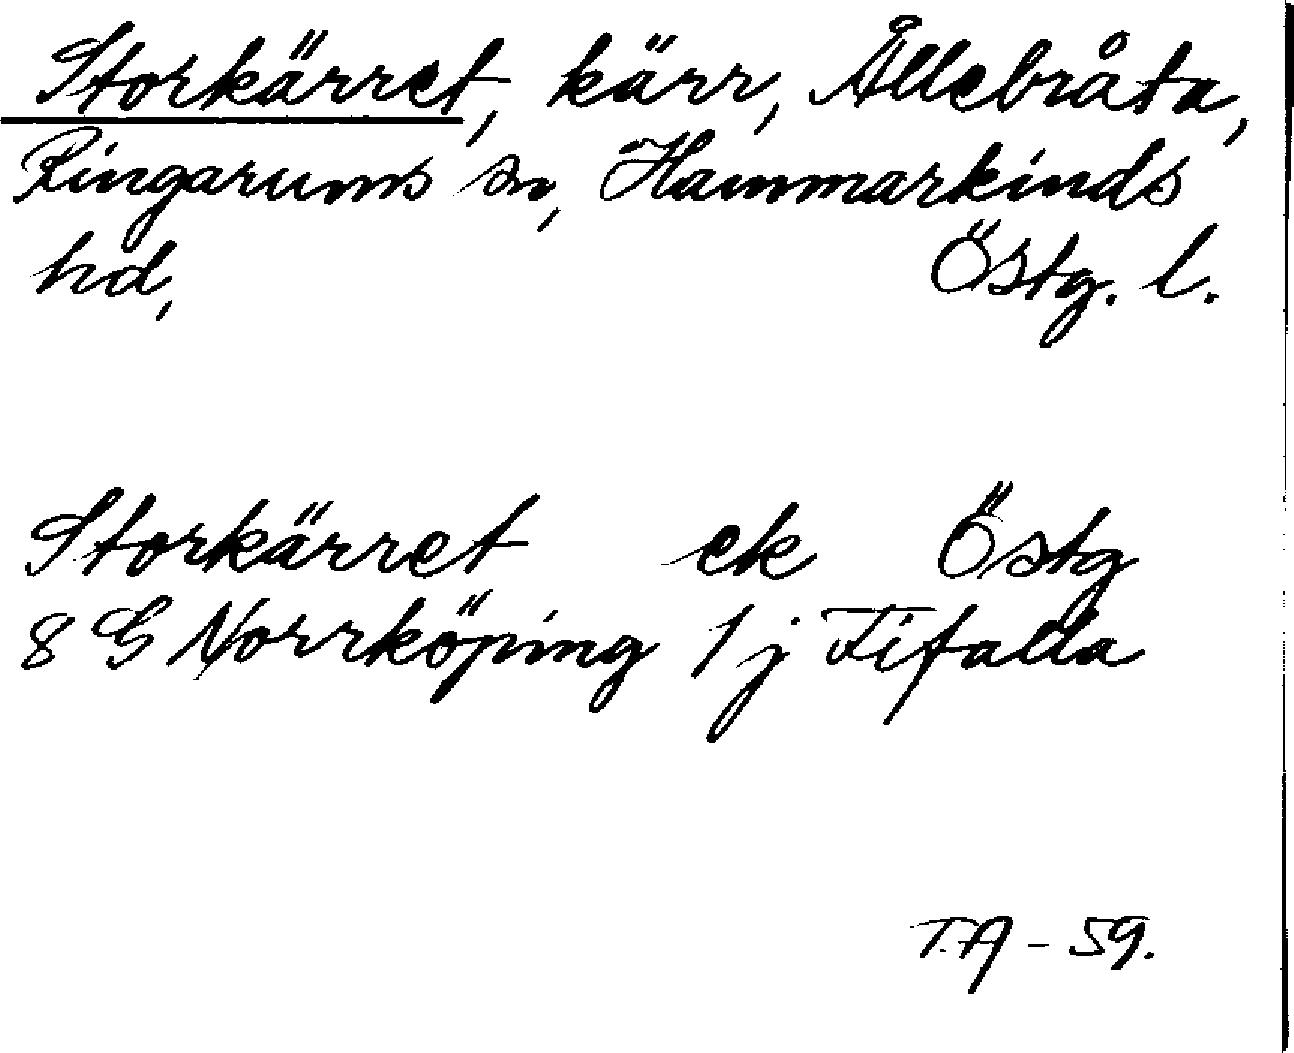 Storkärret, kärr, Ållebråta,
Ringarums sn, Hammarkinds
hd, Östg. l.
Storkärret ek Östg
8 G Norrköping 1 j Fifalla
T.A - 59.